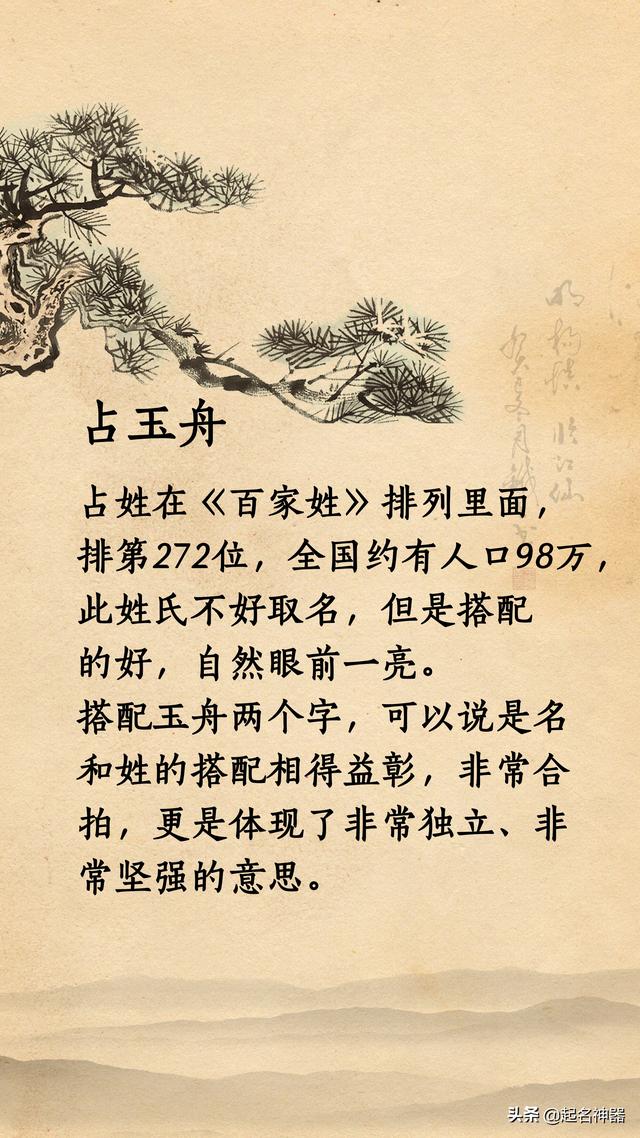 占玉舟
占姓在《百家姓》排列里面，
排第272位，全国约有人口98万，
此姓氏不好取名，但是搭配
的好，自然眼前一亮。
搭配玉舟两个字，可以说是名
和姓的搭配相得益彰，非常合
拍，更是体现了非常独立、非
常坚强的意思。
头条 @起名神器